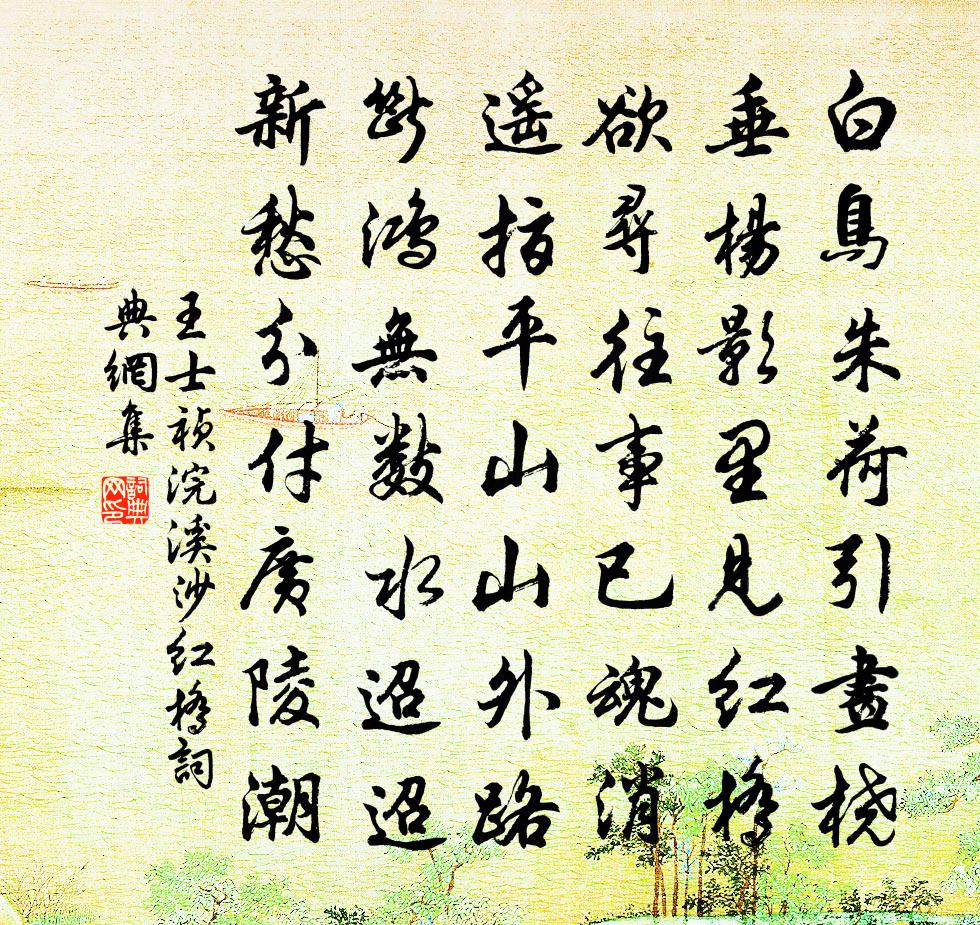 白鳥朱荷引畫橈
垂楊影里見紅橋
欲尋往事已魂消
遥指平山山外路
斷鴻無數水迢迢
新愁分付廣陵潮
王士禎浣溪沙紅橋詞
典網集
詞典网印